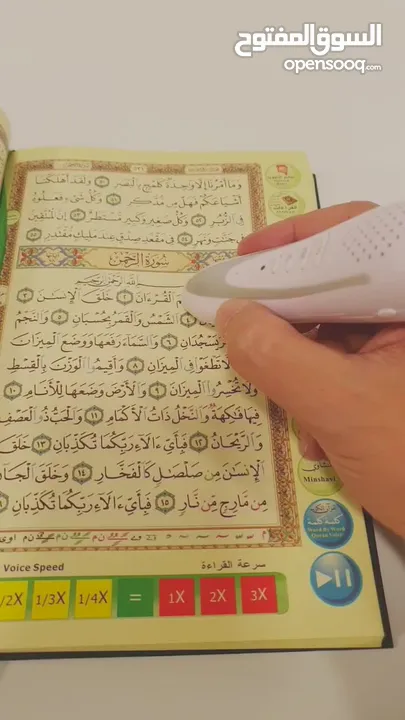 السوق المفتوح
opensooq.com
وَمَآ أَمْرُنَآ إِلَّا وَاحِدَةٌ كَلَمْحٍ بِالْبَصَرِ ٥٠ وَلَقَدْ أَهْلَكْنَآ
أَشْيَاعَكُمْ فَهَلْ مِن مُّدَّكِرٍ ٥١ وَكُلُّ شَىْءٍ فَعَلُوهُ
فِى الزُّبُرِ ٥٢ وَكُلُّ صَغِيرٍ وَكَبِيرٍ مُّسْتَطَرٌ ٥٣ إِنَّ الْمُتَّقِينَ
فِى جَنَّٰتٍ وَنَهَرٍ ٥٤ فِى مَقْعَدِ صِدْقٍ عِندَ مَلِيكٍ مُّقْتَدِرٍ ٥٥
سُورَةُ الرَّحْمَٰن
اللَّهِ الرَّحْمَٰنِ الرَّحِيمِ
الْقُرْءَانَ ٢ خَلَقَ الْإِنسَٰنَ ٣
٤ الشَّمْسُ وَالْقَمَرُ بِحُسْبَانٍ ٥ وَالنَّجْمُ
يَسْجُدَانِ ٦ وَالسَّمَآءَ رَفَعَهَا وَوَضَعَ الْمِيزَانَ
٧ أَلَّا تَطْغَوْا فِى الْمِيزَانِ ٨ وَأَقِيمُوا الْوَزْنَ بِالْقِسْطِ
وَلَا تُخْسِرُوا الْمِيزَانَ ٩ وَالْأَرْضَ وَضَعَهَا لِلْأَنَامِ ١٠
فِيهَا فَٰكِهَةٌ وَالنَّخْلُ ذَاتُ الْأَكْمَامِ ١١ وَالْحَبُّ ذُو الْعَصْفِ
وَالرَّيْحَانُ ١٢ فَبِأَىِّ ءَالَآءِ رَبِّكُمَا تُكَذِّبَانِ ١٣ خَلَقَ
الْإِنسَٰنَ مِن صَلْصَٰلٍ كَالْفَخَّارِ ١٤ وَخَلَقَ الْجَآنَّ
مِن مَّارِجٍ مِّن نَّارٍ ١٥ فَبِأَىِّ ءَالَآءِ رَبِّكُمَا تُكَذِّبَانِ
Minshawi
كلمة كلمة
Word By Word
Voice Speed سرعة القراءة
1/2X 1/3X 1/4X = 1X 2X 3X